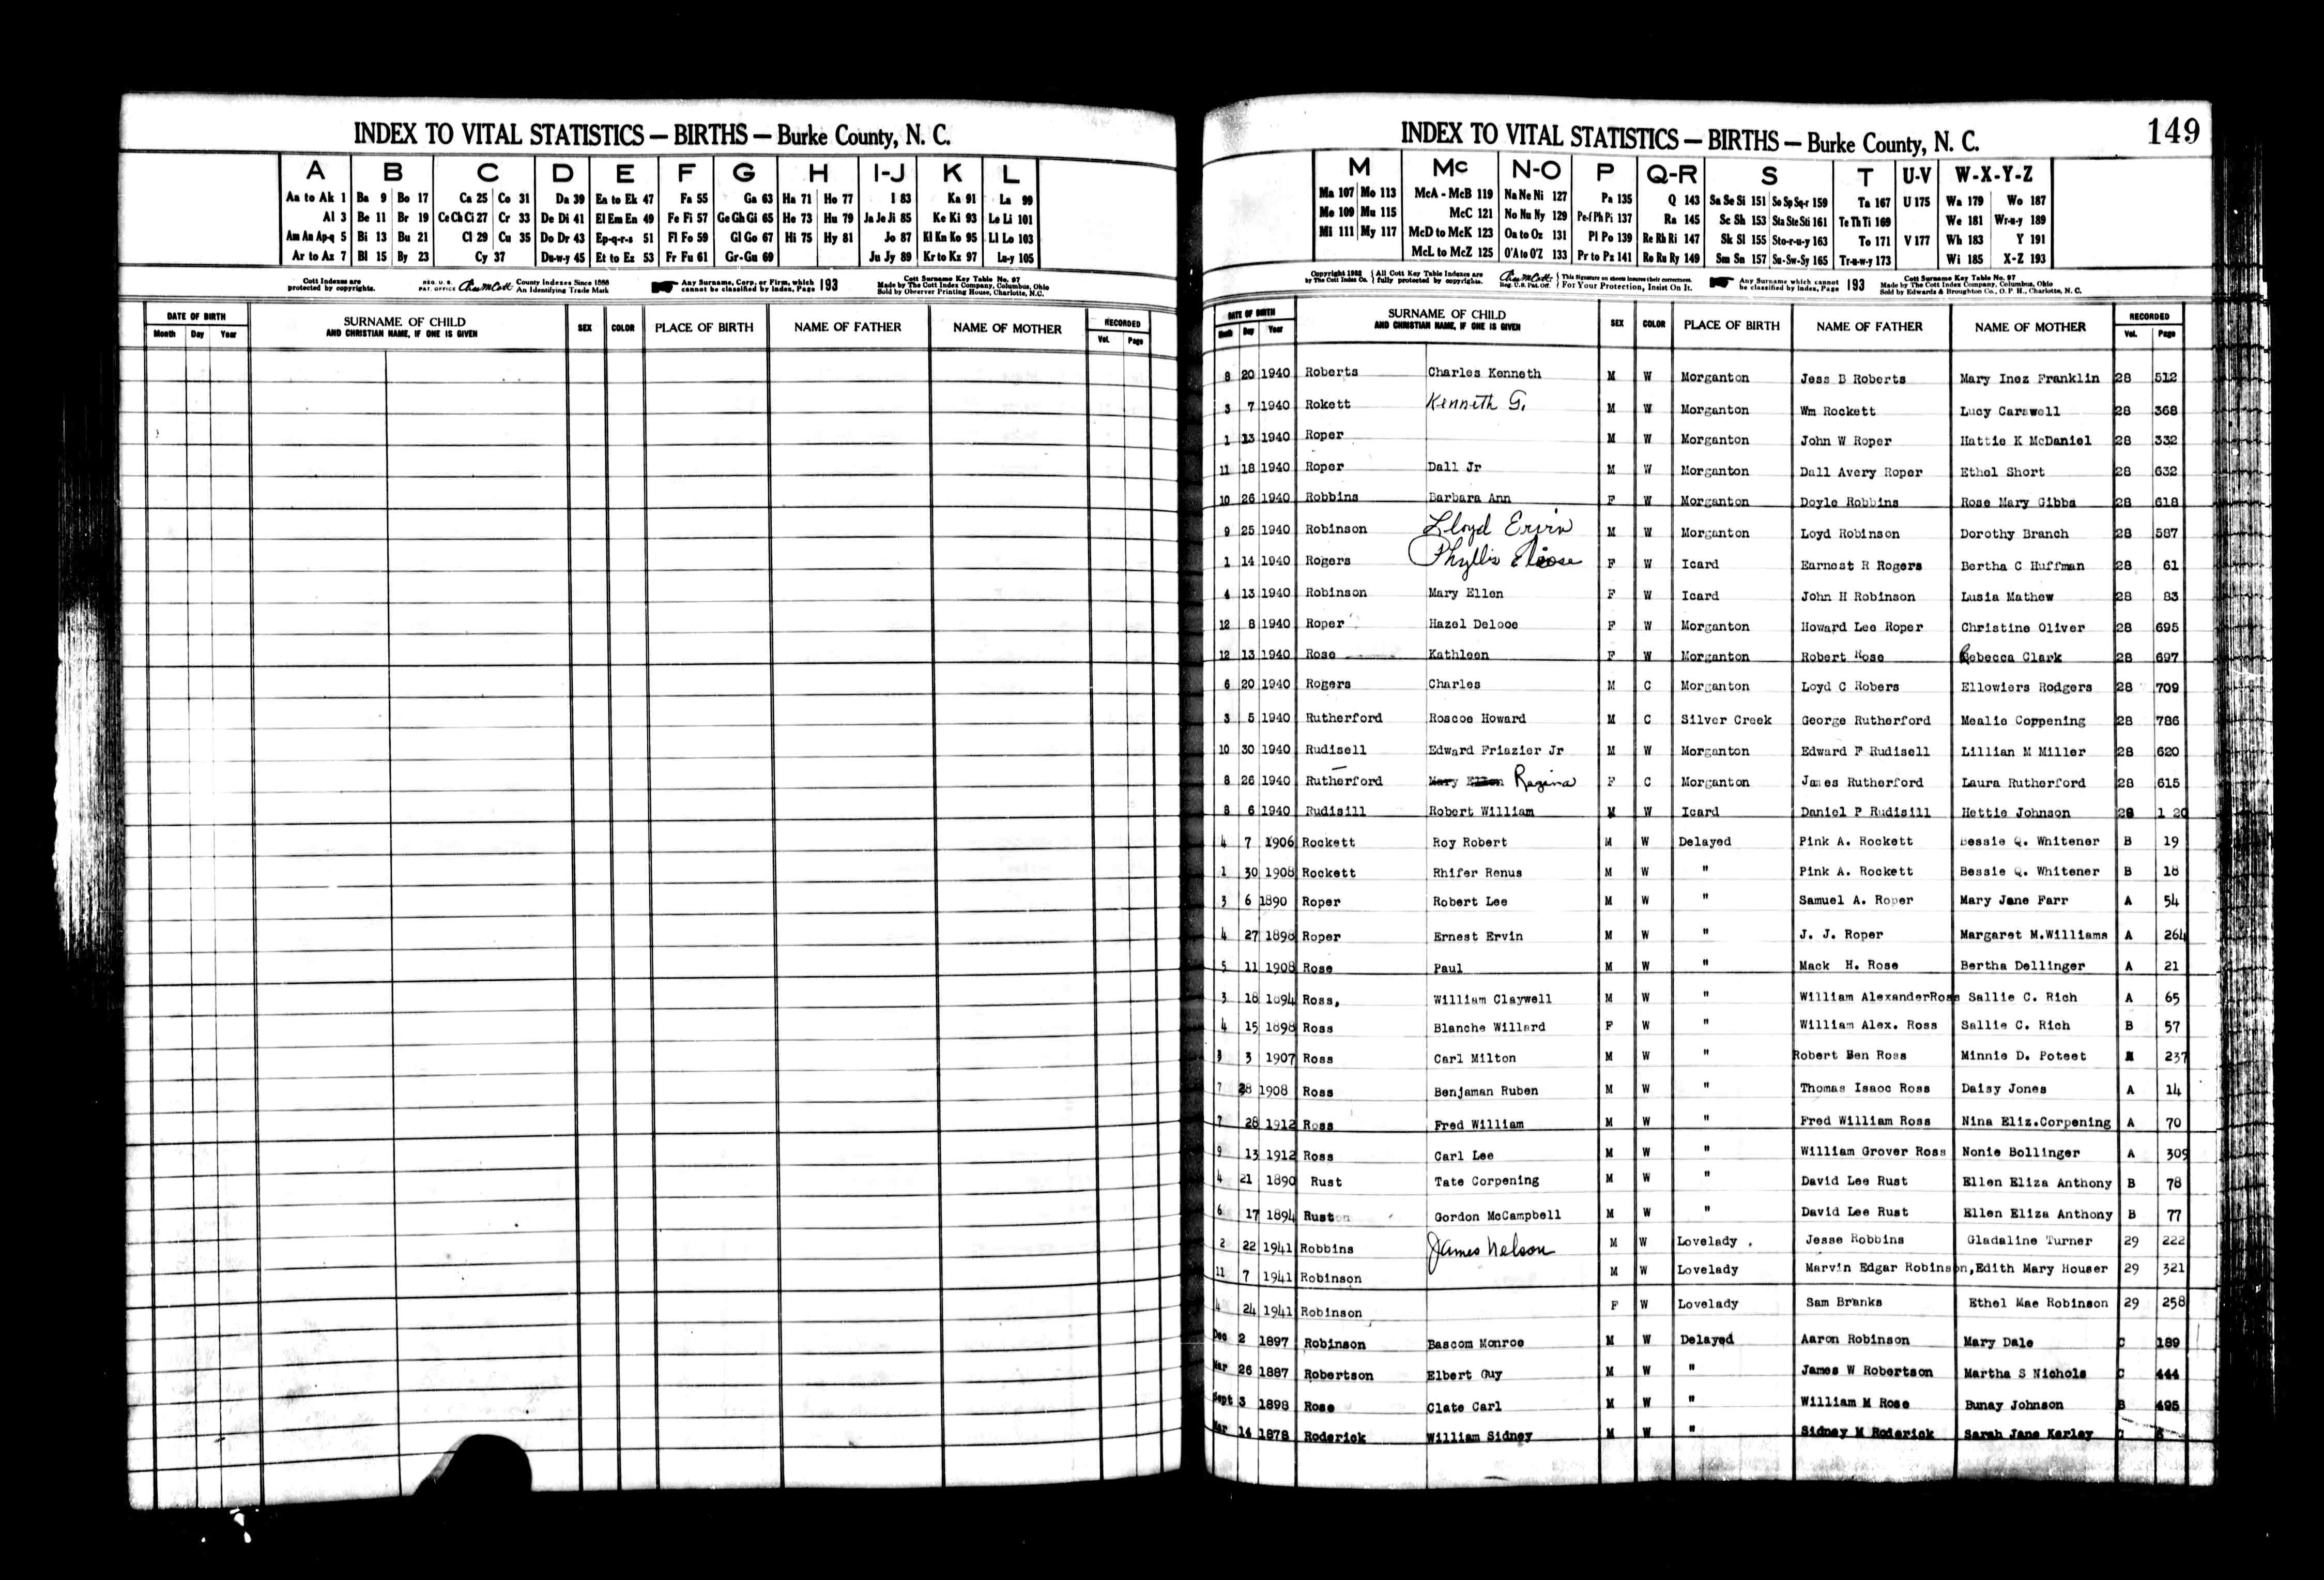 INDEX TO VITAL STATISTICS — BIRTHS — Burke County, N. C.
A B C D E F G H I-J K L
Aa to Ak 1 Ba 9 Bo 17 Ca 25 Co 31 Da 39 Ea to Ek 47 Fa 55 Ga 63 Ha 71 Ho 77 I 83 Ka 91 La 99
Al 3 Be 11 Br 19 Ce Ch Ci 27 Cr 33 De Di 41 El Em En 49 Fe Fi 57 Ge Gh Gi 65 He 73 Hu 79 Ja Je Ji 85 Ke Ki 93 Le Li 101
Am An Ap-q 5 Bi 13 Bu 21 Cl 29 Cu 35 Do Dr 43 Ep-q-r-s 51 Fl Fo 59 Gl Go 67 Hi 75 Hy 81 Jo 87 Kl Kn Ko 95 Ll Lo 103
Ar to Az 7 Bl 15 By 23 Cy 37 Du-w-y 45 Et to Ez 53 Fr Fu 61 Gr-Gu 69 Ju Jy 89 Kr to Kz 97 Lu-y 105
Cott Indexes are protected by copyrights. REG. U. S. PAT. OFFICE County Indexes Since 1888 An Identifying Trade Mark Any Surname, Corp. or Firm, which cannot be classified by Index, Page 193 Cott Surname Key Table No. 97 Made by The Cott Index Company, Columbus, Ohio Sold by Observer Printing House, Charlotte, N.C.
DATE OF BIRTH Month Day Year SURNAME OF CHILD AND CHRISTIAN NAME, IF ONE IS GIVEN SEX COLOR PLACE OF BIRTH NAME OF FATHER NAME OF MOTHER RECORDED Vol. Page
INDEX TO VITAL STATISTICS — BIRTHS — Burke County, N. C. 149
M Mc N-O P Q-R S T U-V W-X-Y-Z
Ma 107 Mo 113 McA - McB 119 Na Ne Ni 127 Pa 135 Q 143 Sa Se Si 151 So Sp Sq-r 159 Ta 167 U 175 Wa 179 Wo 187
Me 109 Mu 115 McC 121 No Nu Ny 129 Pe-f Ph Pi 137 Ra 145 Sc Sh 153 Sta Ste Sti 161 Te Th Ti 169 We 181 Wr-u-y 189
Mi 111 My 117 McD to McK 123 Oa to Oz 131 Pl Po 139 Re Rh Ri 147 Sk Sl 155 Sto-r-u-y 163 To 171 V 177 Wh 183 Y 191
McL to McZ 125 O'A to O'Z 133 Pr to Pz 141 Ro Ru Ry 149 Sm Sn 157 Su-Sw-Sy 165 Tr-u-w-y 173 Wi 185 X-Z 193
Copyright 1932 by The Cott Index Co. All Cott Key Table Indexes are fully protected by copyrights. Reg. U.S. Pat. Off. This Signature on sheets insures their correctness. For Your Protection, Insist On It. Any Surname which cannot be classified by Index, Page 193 Cott Surname Key Table No. 97 Made by The Cott Index Company, Columbus, Ohio Sold by Edwards & Broughton Co., O. P. H., Charlotte, N. C.
DATE OF BIRTH Month Day Year SURNAME OF CHILD AND CHRISTIAN NAME, IF ONE IS GIVEN SEX COLOR PLACE OF BIRTH NAME OF FATHER NAME OF MOTHER RECORDED Vol. Page
8 20 1940 Roberts Charles Kenneth M W Morganton Jess B Roberts Mary Inez Franklin 28 512
3 7 1940 Rokett Kenneth G. M W Morganton Wm Rockett Lucy Carswell 28 368
1 13 1940 Roper M W Morganton John W Roper Hattie K McDaniel 28 332
11 18 1940 Roper Dall Jr M W Morganton Dall Avery Roper Ethel Short 28 632
10 26 1940 Robbins Barbara Ann F W Morganton Doyle Robbins Rose Mary Gibbs 28 618
9 25 1940 Robinson Lloyd Ervin M W Morganton Loyd Robinson Dorothy Branch 28 587
1 14 1940 Rogers Phyllis Eloose F W Icard Earnest R Rogers Bertha C Huffman 28 61
4 13 1940 Robinson Mary Ellen F W Icard John H Robinson Lusia Mathew 28 83
12 8 1940 Roper Hazel Deloce F W Morganton Howard Lee Roper Christine Oliver 28 695
12 13 1940 Rose Kathleen F W Morganton Robert Rose Rebecca Clark 28 697
6 20 1940 Rogers Charles M C Morganton Loyd C Robers Ellowiers Rodgers 28 709
3 5 1940 Rutherford Roscoe Howard M C Silver Creek George Rutherford Mealie Coppening 28 786
10 30 1940 Rudisell Edward Friazier Jr M W Morganton Edward F Rudisell Lillian M Miller 28 620
8 26 1940 Rutherford Mary Ellen Regina F C Morganton James Rutherford Laura Rutherford 28 615
8 6 1940 Rudisill Robert William M W Icard Daniel P Rudisill Hettie Johnson 28 1 20
4 7 1906 Rockett Roy Robert M W Delayed Pink A. Rockett Bessie Q. Whitener B 19
1 30 1908 Rockett Rhifer Renus M W " Pink A. Rockett Bessie Q. Whitener B 18
3 6 1890 Roper Robert Lee M W " Samuel A. Roper Mary Jane Farr A 54
4 27 1898 Roper Ernest Ervin M W " J. J. Roper Margaret M.Williams A 264
5 11 1908 Rose Paul M W " Mack H. Rose Bertha Dellinger A 21
3 18 1894 Ross, William Claywell M W " William AlexanderRoss Sallie C. Rich A 65
4 15 1898 Ross Blanche Willard F W " William Alex. Ross Sallie C. Rich B 57
3 3 1907 Ross Carl Milton M W " Robert Ben Ross Minnie D. Poteet 237
7 28 1908 Ross Benjaman Ruben M W " Thomas Isaoc Ross Daisy Jones A 14
7 28 1912 Ross Fred William M W " Fred William Ross Nina Eliz.Corpening A 70
9 13 1912 Ross Carl Lee M W " William Grover Ross Nonie Bollinger A 309
4 21 1890 Rust Tate Corpening M W " David Lee Rust Ellen Eliza Anthony B 78
6 17 1894 Ruston Gordon McCampbell M W " David Lee Rust Ellen Eliza Anthony B 77
2 22 1941 Robbins James Nelson M W Lovelady . Jesse Robbins Gladaline Turner 29 222
11 7 1941 Robinson M W Lovelady Marvin Edgar Robinson, Edith Mary Houser 29 321
4 24 1941 Robinson F W Lovelady Sam Branks Ethel Mae Robinson 29 258
Dec 2 1897 Robinson Bascom Monroe M W Delayed Aaron Robinson Mary Dale C 189
Mar 26 1887 Robertson Elbert Guy M W " James W Robertson Martha S Nichols C 444
Sept 3 1898 Rose Clate Carl M W " William M Rose Bunay Johnson B 495
Mar 14 1878 Roderick William Sidney M W " Sidney M Roderick Sarah Jane Karley